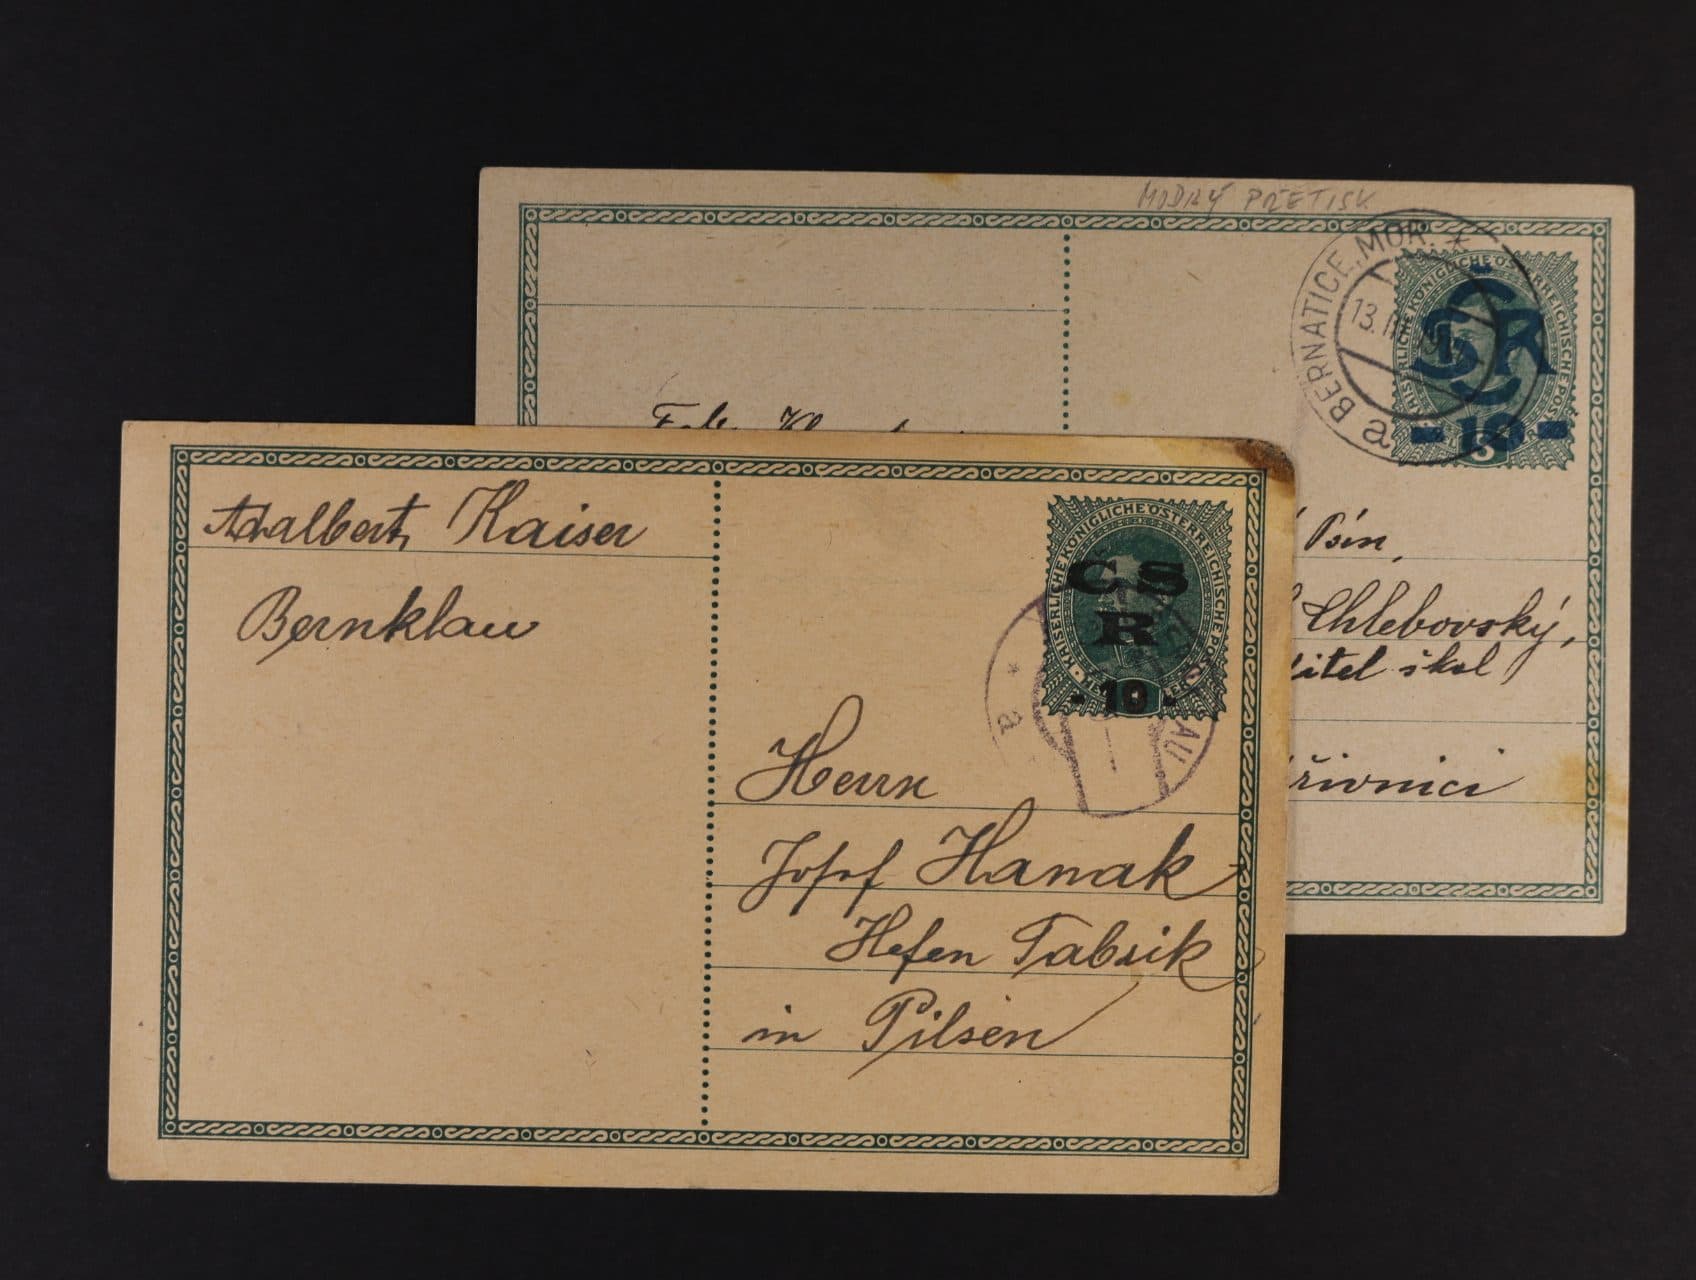 MODRÝ PŘETISK
BERNATICE, MOR. *
13. III. 19
a
KAISERLICHE KÖNIGLICHE ÖSTERREICHISCHE POST
Č
S R
- 10 -
Psín,
Chlebovský,
ditel škol
Adalbert Kaiser
Bernklau
KAISERLICHE KÖNIGLICHE ÖSTERREICHISCHE POST
Č S
R
- 10 -
* a
Herrn
Josef Hanak
Hefen Fabrik
in Pilsen